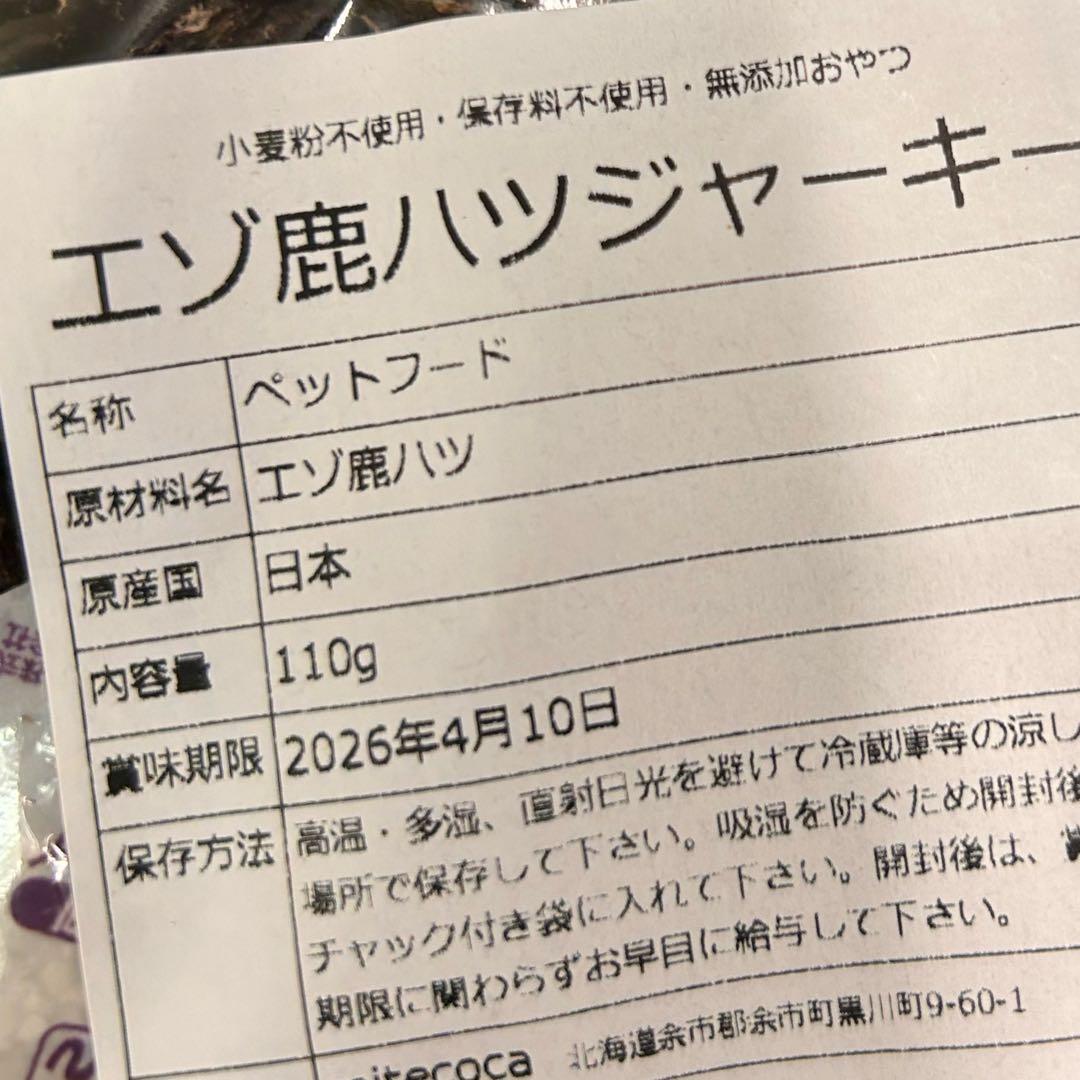 小麦粉不使用・保存料不使用・無添加おやつ
エゾ鹿ハツジャーキー
名称 ペットフード
原材料名 エゾ鹿ハツ
原産国 日本
内容量 110g
賞味期限 2026年4月10日
保存方法 高温・多湿、直射日光を避けて冷蔵庫等の涼し
場所で保存して下さい。吸湿を防ぐため開封後
チャック付き袋に入れて下さい。開封後は、賞
期限に関わらずお早目に給与して下さい。
nitecoca 北海道余市郡余市町黒川町9-60-1